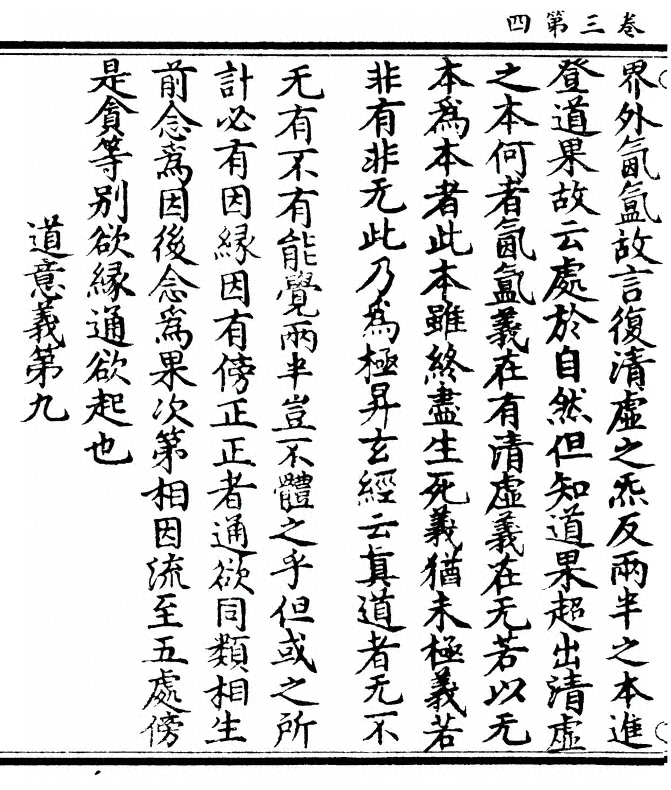 卷三第四
界外氤氲故言復清虛之炁反兩半之本進
登道果故云處於自然但知道果超出清虛
之本何者氤氲義在有清虛義在无若以无
本爲本者此本雖終盡生死義猶未極義若
非有非无此乃爲極昇玄經云眞道者无不
无有不有能覺兩半豈不體之乎但或之所
計必有因縁因有傍正正者通欲同類相生
前念爲因後念爲果次第相因流至五處傍
是貪等別欲縁通欲起也
道意義第九